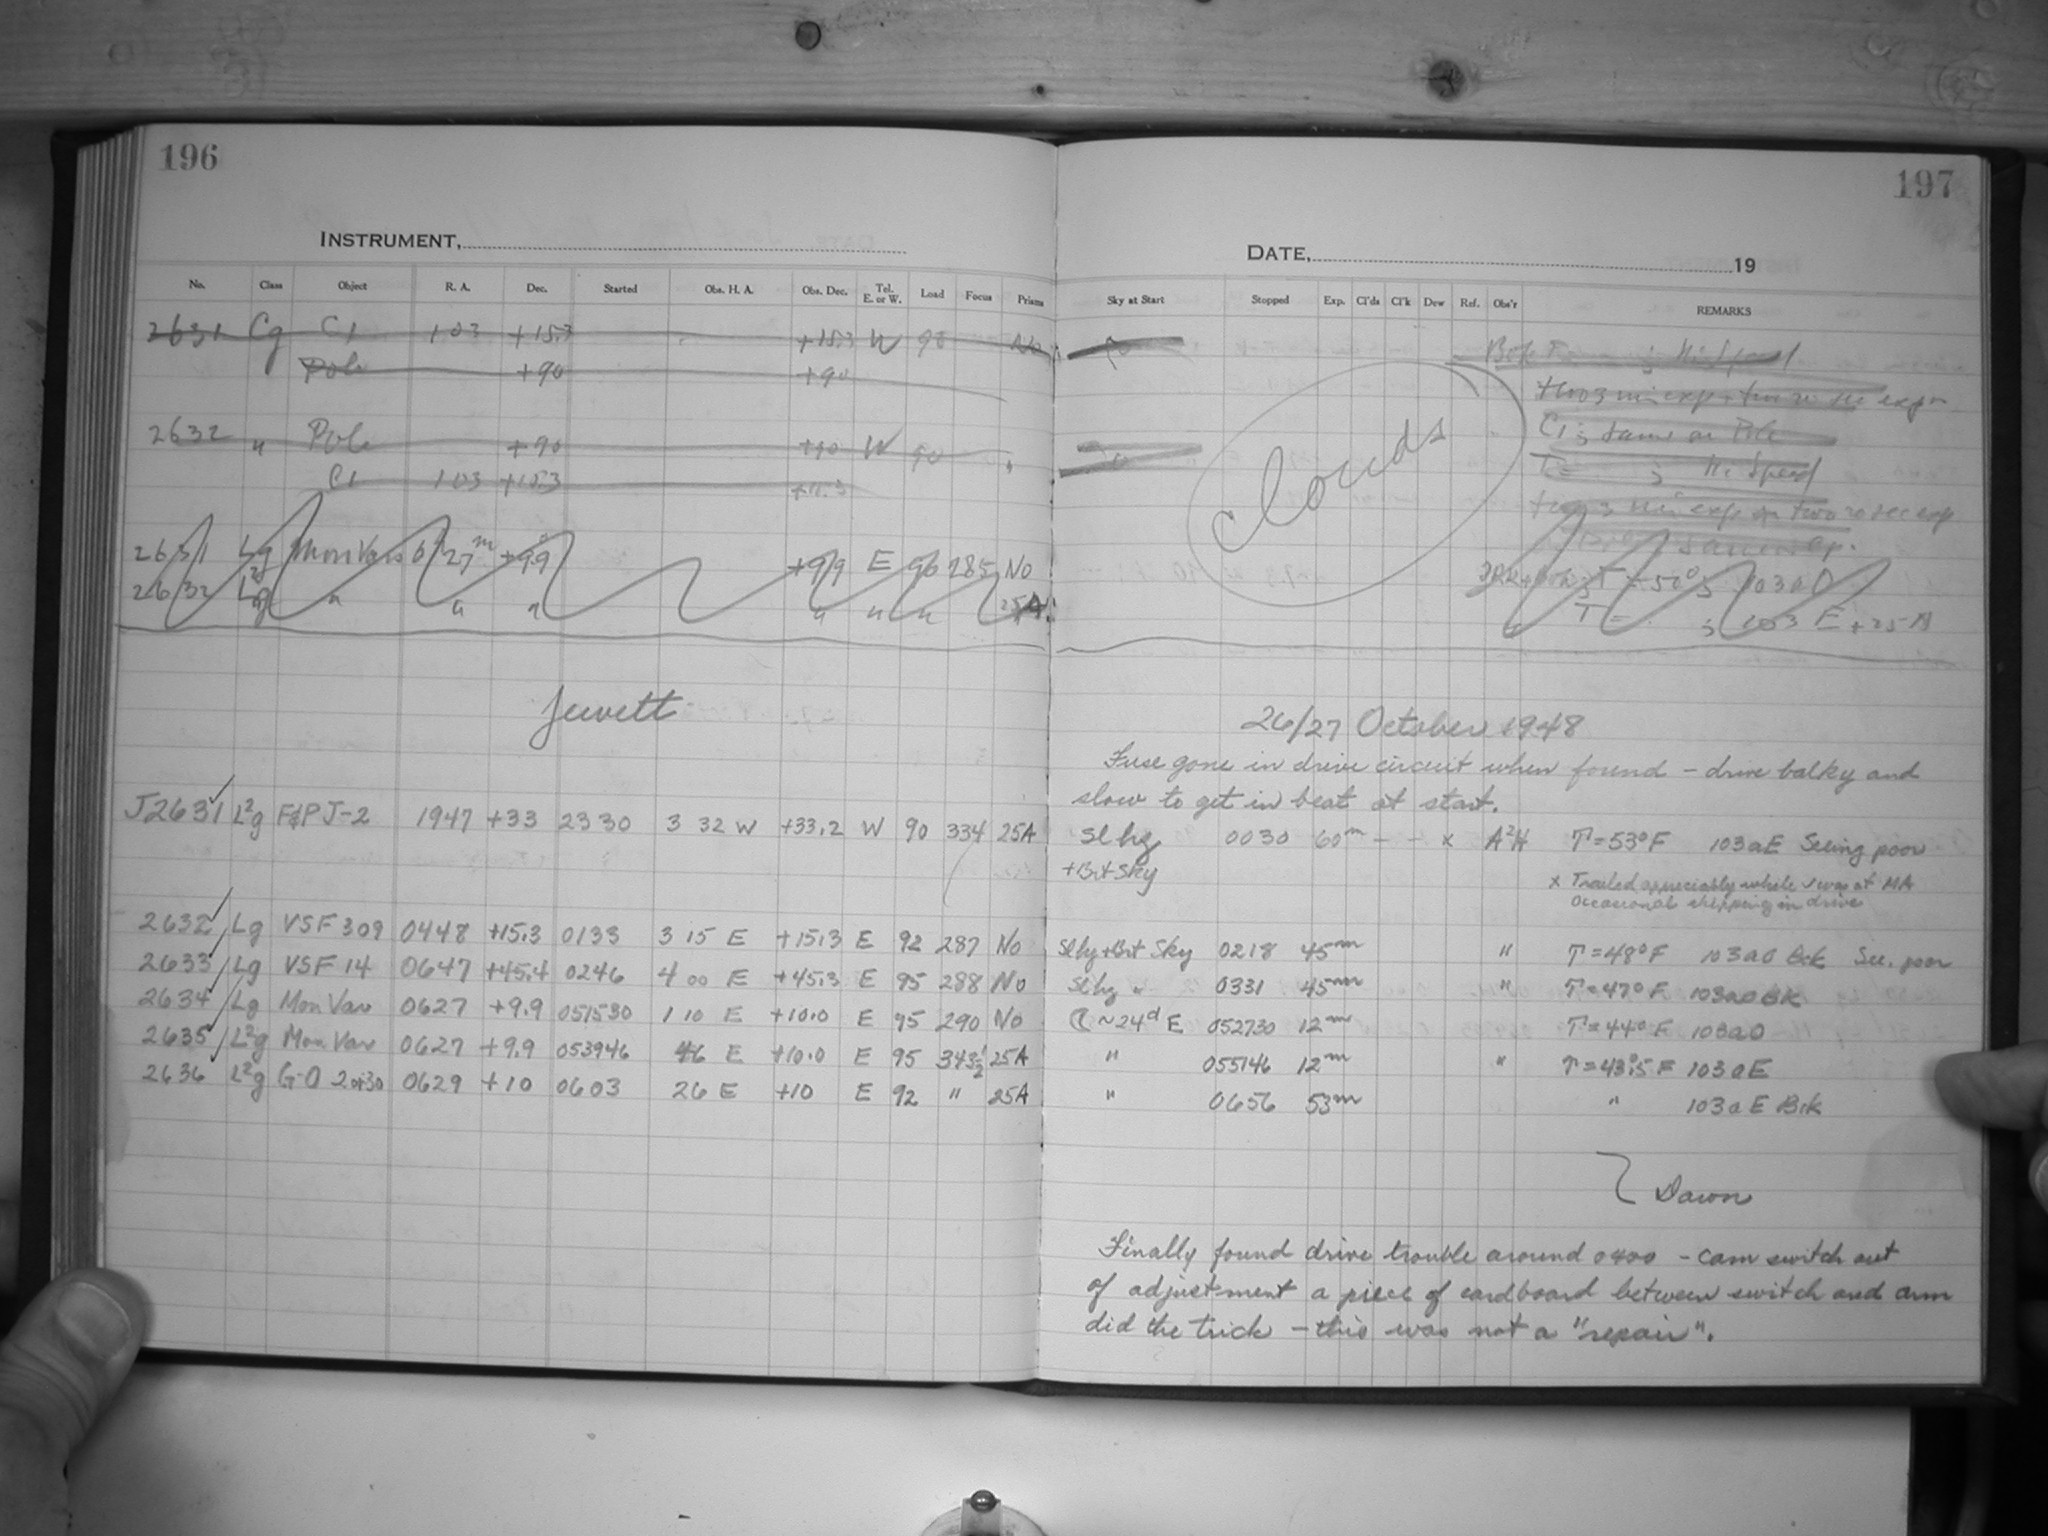 196
INSTRUMENT,
No. Class Object R. A. Dec. Started Obs. H. A. Obs. Dec. Tel. E. or W. Load Focus Prisms
2631 Cg C1 103 +15.3 +15.3 W 90 No
Pole +90 +90
2632 " Pole +90 +90 W 90 "
C1 103 +15.3
2631 Lg Mon Var 6 27m +9.9 +9.9 E 96 285 No
2632 L²g " " " " " " 25A
Jewett
J2631 L²g F&P J-2 1947 +33 2330 3 32 W +33.2 W 90 334 25A
2632 Lg VSF 309 0448 +15.3 0133 3 15 E +15.3 E 92 287 No
2633 Lg VSF 14 0647 +45.4 0246 4 00 E +45.3 E 95 288 No
2634 Lg Mon Var 0627 +9.9 051530 1 10 E +10.0 E 95 290 No
2635 L²g Mon Var 0627 +9.9 053946 46 E +10.0 E 95 343½ 25A
2636 L²g G-O 0629 +10 0603 26 E +10 E 92 " 25A
197
DATE, 19
Sky at Start Stopped Exp. Cl'ds Cl'k Dew Ref. Obs'r REMARKS
Hi Speed
two 3 min exp + two 20 sec exp
C1; same as Pole
T= ; Hi Speed
two 3 min exp + two 20 sec exp
Clouds
T = 50°; 103aO
T = ; 103 E + 25A
26/27 October 1948
Fuse gone in drive circuit when found - drive balky and
slow to get in beat at start.
Sl hy 0030 60m - - x A²H T=53°F 103aE Seeing poor
+Brt Sky x Trailed appreciably while I was at HA
Occasional skipping in drive
Sl hy + Brt Sky 0218 45m " T=48°F 103aO Bck See. poor
Sl hy " 0331 45m " T=47°F 103aO BcK
☾ ~24d E 052730 12m T=44°F 103aO
" 055146 12m " T=43°.5 F 103aE
" 0656 53m " 103aE Bck
Dawn
Finally found drive trouble around 0400 - cam switch out
of adjustment a piece of cardboard between switch and arm
did the trick - this was not a "repair".